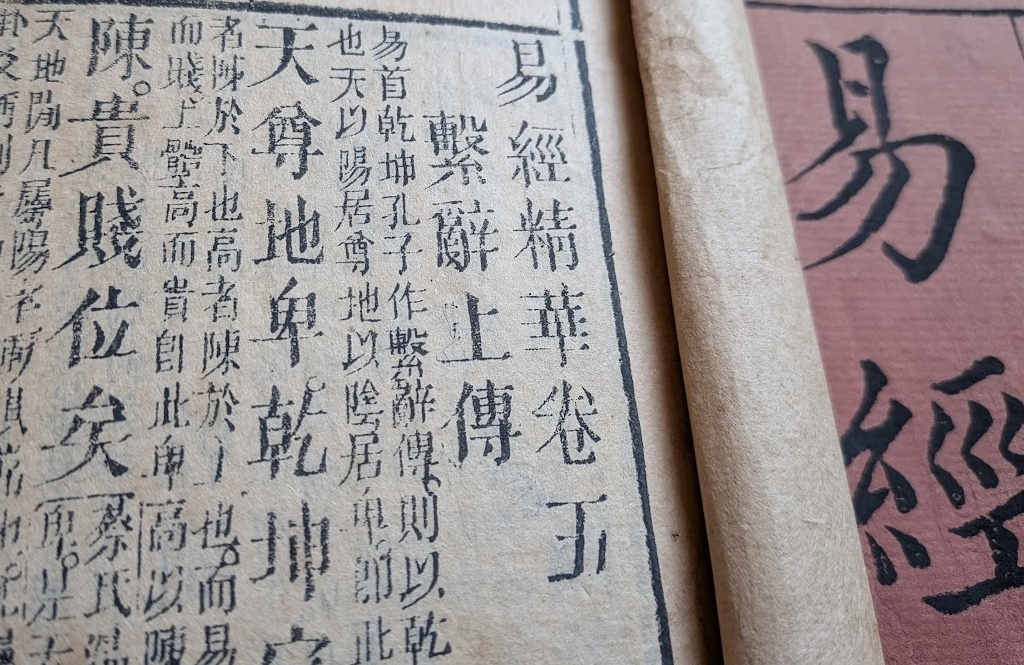 易經
易經精華卷五
繫辭上傳
易首乾坤孔子作繫辭傳則以乾
也天以陽居尊地以陰居卑即此
天尊地卑乾坤
者陳於下也高者陳於上也而易
而賤上體高而貴自此卑高以陳
陳貴賤位矣蔡氏
天地間凡屬陽者